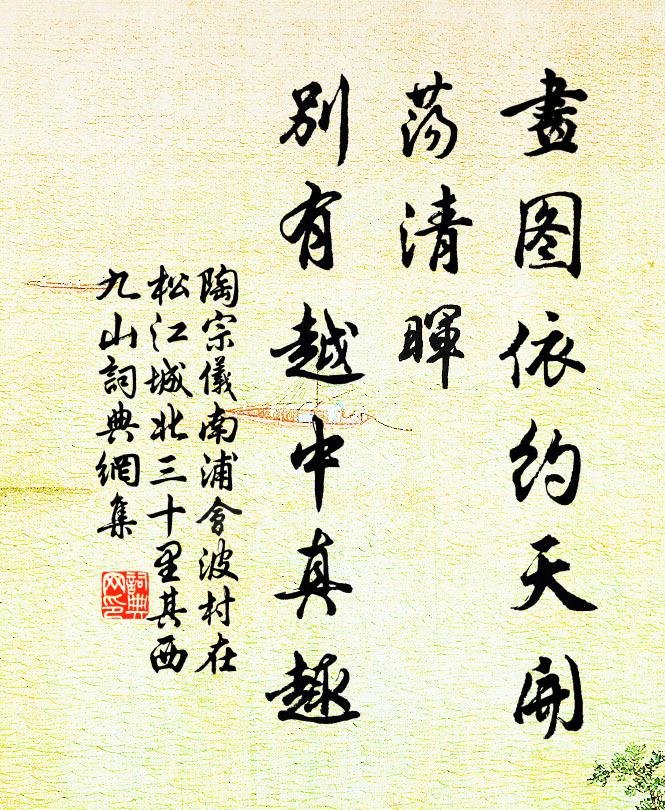 畫图依约天開
荡清暉
别有越中真趣
陶宗儀南浦會波村在
松江城北三十里其西
九山詞典網集
詞典网印